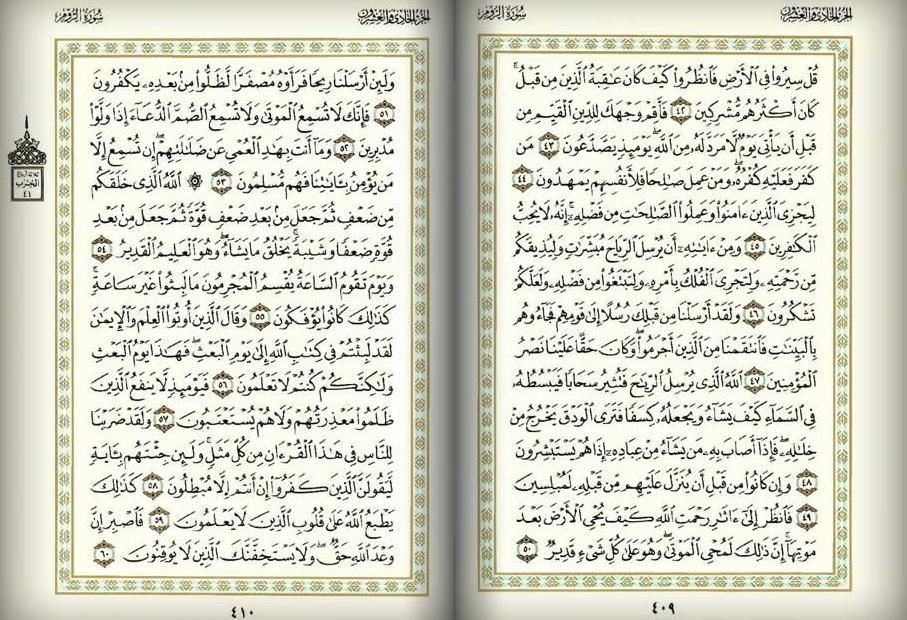 الجزء الحادي والعشرون
سورة الروم
قُلْ سِيرُوا۟ فِى ٱلْأَرْضِ فَٱنظُرُوا۟ كَيْفَ كَانَ عَـٰقِبَةُ ٱلَّذِينَ مِن قَبْلُ ۚ
كَانَ أَكْثَرُهُم مُّشْرِكِينَ ٤٢ فَأَقِمْ وَجْهَكَ لِلدِّينِ ٱلْقَيِّمِ مِن
قَبْلِ أَن يَأْتِىَ يَوْمٌ لَّا مَرَدَّ لَهُۥ مِنَ ٱللَّهِ ۖ يَوْمَئِذٍ يَصَّدَّعُونَ ٤٣ مَن
كَفَرَ فَعَلَيْهِ كُفْرُهُۥ ۖ وَمَنْ عَمِلَ صَـٰلِحًا فَلِأَنفُسِهِمْ يَمْهَدُونَ ٤٤
لِيَجْزِىَ ٱلَّذِينَ ءَامَنُوا۟ وَعَمِلُوا۟ ٱلصَّـٰلِحَـٰتِ مِن فَضْلِهِۦٓ ۚ إِنَّهُۥ لَا يُحِبُّ
ٱلْكَـٰفِرِينَ ٤٥ وَمِنْ ءَايَـٰتِهِۦٓ أَن يُرْسِلَ ٱلرِّيَاحَ مُبَشِّرَٰتٍ وَلِيُذِيقَكُم
مِّن رَّحْمَتِهِۦ وَلِتَجْرِىَ ٱلْفُلْكُ بِأَمْرِهِۦ وَلِتَبْتَغُوا۟ مِن فَضْلِهِۦ وَلَعَلَّكُمْ
تَشْكُرُونَ ٤٦ وَلَقَدْ أَرْسَلْنَا مِن قَبْلِكَ رُسُلًا إِلَىٰ قَوْمِهِمْ فَجَآءُوهُم
بِٱلْبَيِّنَـٰتِ فَٱنتَقَمْنَا مِنَ ٱلَّذِينَ أَجْرَمُوا۟ ۖ وَكَانَ حَقًّا عَلَيْنَا نَصْرُ
ٱلْمُؤْمِنِينَ ٤٧ ٱللَّهُ ٱلَّذِى يُرْسِلُ ٱلرِّيَـٰحَ فَتُثِيرُ سَحَابًا فَيَبْسُطُهُۥ
فِى ٱلسَّمَآءِ كَيْفَ يَشَآءُ وَيَجْعَلُهُۥ كِسَفًا فَتَرَى ٱلْوَدْقَ يَخْرُجُ مِنْ
خِلَـٰلِهِۦ ۖ فَإِذَآ أَصَابَ بِهِۦ مَن يَشَآءُ مِنْ عِبَادِهِۦٓ إِذَا هُمْ يَسْتَبْشِرُونَ
٤٨ وَإِن كَانُوا۟ مِن قَبْلِ أَن يُنَزَّلَ عَلَيْهِم مِّن قَبْلِهِۦ لَمُبْلِسِينَ
٤٩ فَٱنظُرْ إِلَىٰٓ ءَاثَـٰرِ رَحْمَتِ ٱللَّهِ كَيْفَ يُحْىِ ٱلْأَرْضَ بَعْدَ
مَوْتِهَآ ۚ إِنَّ ذَٰلِكَ لَمُحْىِ ٱلْمَوْتَىٰ ۖ وَهُوَ عَلَىٰ كُلِّ شَىْءٍ قَدِيرٌ ٥٠
٤٠٩
الجزء الحادي والعشرون
سورة الروم
وَلَئِنْ أَرْسَلْنَا رِيحًا فَرَأَوْهُ مُصْفَرًّا لَّظَلُّوا۟ مِنۢ بَعْدِهِۦ يَكْفُرُونَ
٥١ فَإِنَّكَ لَا تُسْمِعُ ٱلْمَوْتَىٰ وَلَا تُسْمِعُ ٱلصُّمَّ ٱلدُّعَآءَ إِذَا وَلَّوْا۟
مُدْبِرِينَ ٥٢ وَمَآ أَنتَ بِهَـٰدِ ٱلْعُمْىِ عَن ضَلَـٰلَتِهِمْ ۖ إِن تُسْمِعُ إِلَّا
مَن يُؤْمِنُ بِـَٔايَـٰتِنَا فَهُم مُّسْلِمُونَ ٥٣ ۞ ٱللَّهُ ٱلَّذِى خَلَقَكُم
مِّن ضَعْفٍ ثُمَّ جَعَلَ مِنۢ بَعْدِ ضَعْفٍ قُوَّةً ثُمَّ جَعَلَ مِنۢ بَعْدِ
قُوَّةٍ ضَعْفًا وَشَيْبَةً ۚ يَخْلُقُ مَا يَشَآءُ ۖ وَهُوَ ٱلْعَلِيمُ ٱلْقَدِيرُ ٥٤
وَيَوْمَ تَقُومُ ٱلسَّاعَةُ يُقْسِمُ ٱلْمُجْرِمُونَ مَا لَبِثُوا۟ غَيْرَ سَاعَةٍ ۚ
كَذَٰلِكَ كَانُوا۟ يُؤْفَكُونَ ٥٥ وَقَالَ ٱلَّذِينَ أُوتُوا۟ ٱلْعِلْمَ وَٱلْإِيمَـٰنَ
لَقَدْ لَبِثْتُمْ فِى كِتَـٰبِ ٱللَّهِ إِلَىٰ يَوْمِ ٱلْبَعْثِ ۖ فَهَـٰذَا يَوْمُ ٱلْبَعْثِ
وَلَـٰكِنَّكُمْ كُنتُمْ لَا تَعْلَمُونَ ٥٦ فَيَوْمَئِذٍ لَّا يَنفَعُ ٱلَّذِينَ
ظَلَمُوا۟ مَعْذِرَتُهُمْ وَلَا هُمْ يُسْتَعْتَبُونَ ٥٧ وَلَقَدْ ضَرَبْنَا
لِلنَّاسِ فِى هَـٰذَا ٱلْقُرْءَانِ مِن كُلِّ مَثَلٍ ۚ وَلَئِن جِئْتَهُم بِـَٔايَةٍ
لَّيَقُولَنَّ ٱلَّذِينَ كَفَرُوٓا۟ إِنْ أَنتُمْ إِلَّا مُبْطِلُونَ ٥٨ كَذَٰلِكَ
يَطْبَعُ ٱللَّهُ عَلَىٰ قُلُوبِ ٱلَّذِينَ لَا يَعْلَمُونَ ٥٩ فَٱصْبِرْ إِنَّ
وَعْدَ ٱللَّهِ حَقٌّ ۖ وَلَا يَسْتَخِفَّنَّكَ ٱلَّذِينَ لَا يُوقِنُونَ ٦٠
الحزب
٤١
٤١٠